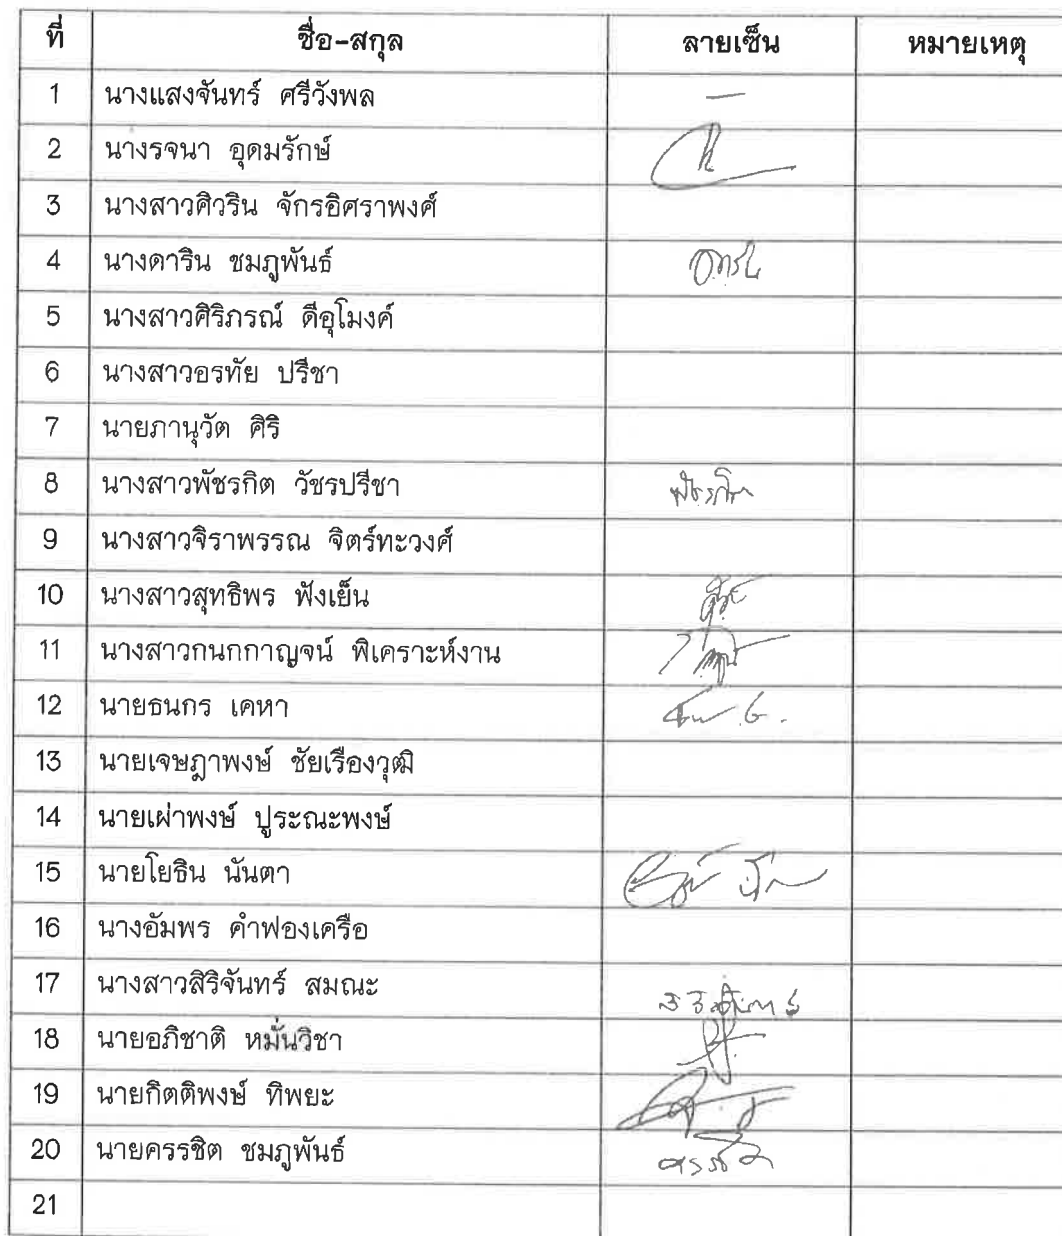 ที่ ชื่อ-สกุล ลายเซ็น หมายเหตุ
1 นางแสงจันทร์ ศรีวังพล —
2 นางรจนา อุดมรักษ์
3 นางสาวศิวริน จักรอิศราพงศ์
4 นางดาริน ชมภูพันธ์ ดาริน
5 นางสาวศิริภรณ์ ดีอุโมงค์
6 นางสาวอรทัย ปรีชา
7 นายภานุวัต ศิริ
8 นางสาวพัชรกิต วัชรปรีชา พัชรกิต
9 นางสาวจิราพรรณ จิตร์ทะวงศ์
10 นางสาวสุทธิพร ฟังเย็น
11 นางสาวกนกกาญจน์ พิเคราะห์งาน
12 นายธนกร เคหา
13 นายเจษฎาพงษ์ ชัยเรืองวุฒิ
14 นายเผ่าพงษ์ ปูระณะพงษ์
15 นายโยธิน นันตา
16 นางอัมพร คำฟองเครือ
17 นางสาวสิริจันทร์ สมณะ สิริจันทร์
18 นายอภิชาติ หมั่นวิชา
19 นายกิตติพงษ์ ทิพยะ
20 นายครรชิต ชมภูพันธ์ ครรชิต
21